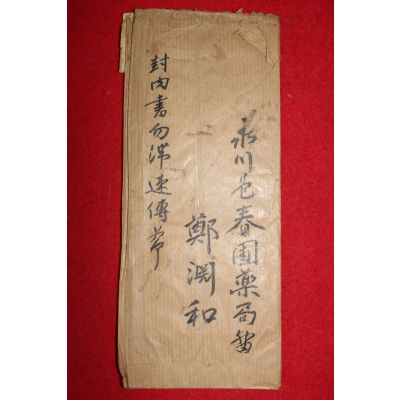 永川邑春園藥局
鄭淵和
封內書勿滯速傳